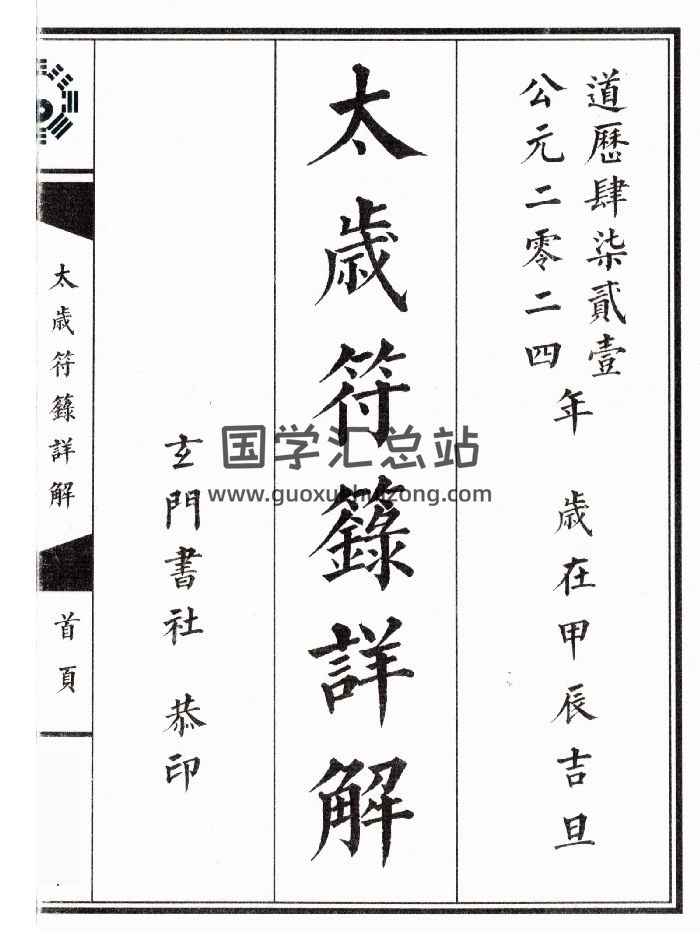 道歷肆柒貳壹
公元二零二四
年 歲在甲辰吉旦
太歲符籙詳解
玄門書社 恭印
太歲符籙詳解
首頁
国学汇总站
www.guoxuehuizong.com